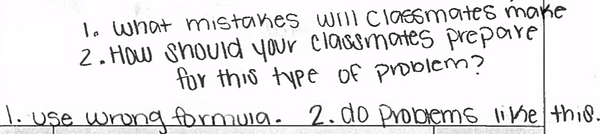 1. what mistakes will classmates make
2. How should your classmates prepare
for this type of problem?
1. use wrong formula. 2. do problems like this.